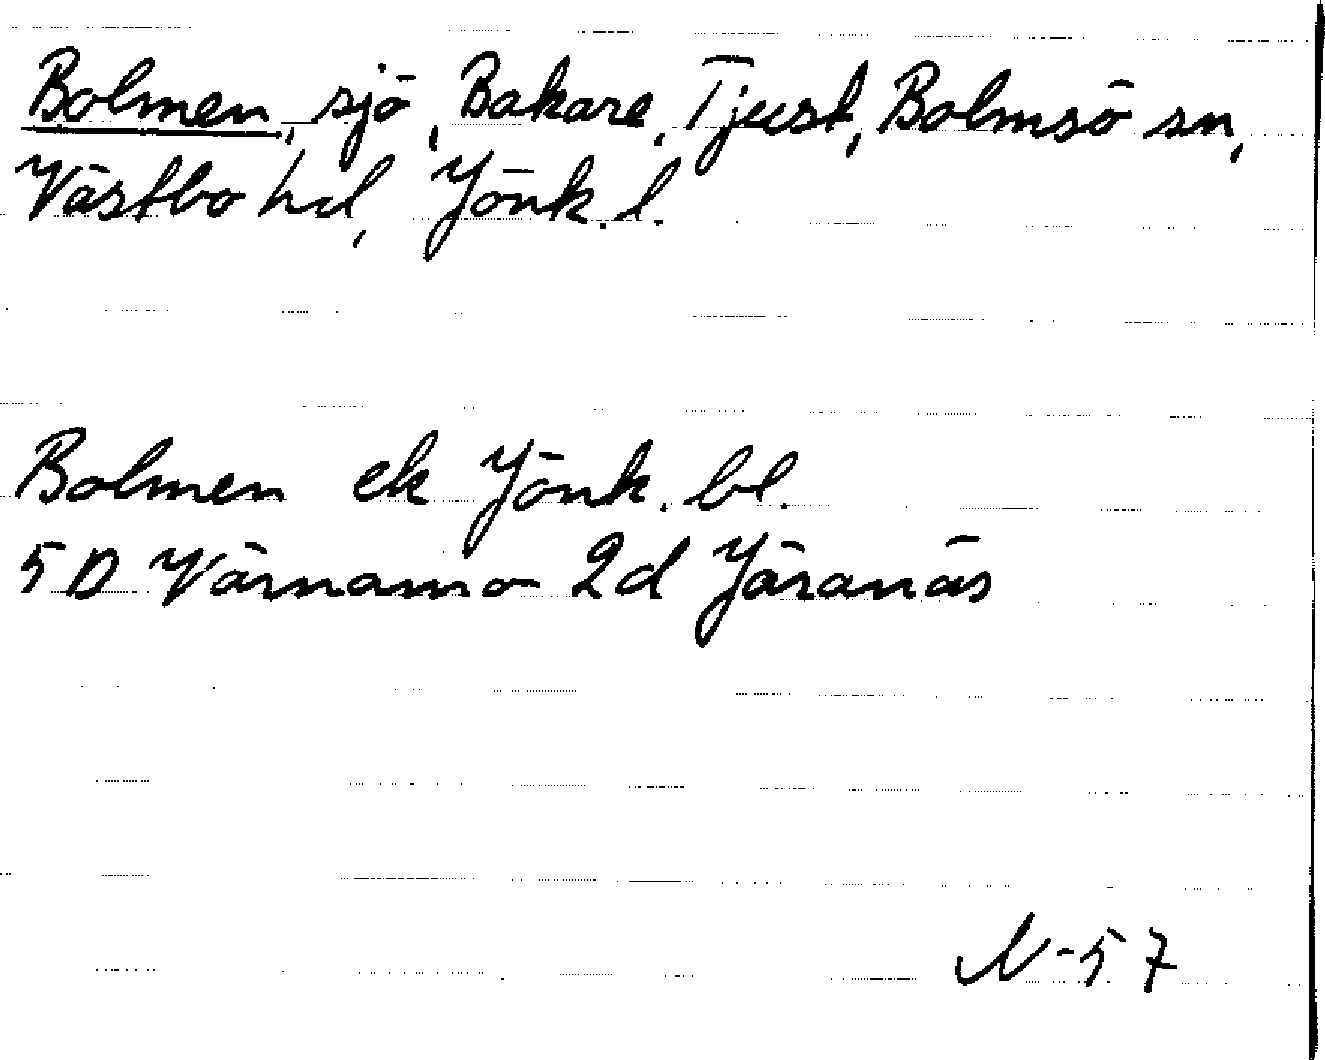 Bolmen, sjö, Bakare, Tjust, Bolmsö sn,
Västbo hd, Jönk. l.
Bolmen ek Jönk. bl.
5D Värnamo 2d Järanäs
N-57